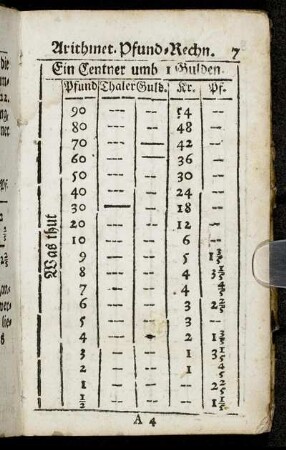 Arithmet. Pfund-Rechn. 7
Ein Centner umb 1 Gulden.
Pfund Thaler Guld. Kr. Pf.
Was thut
90 — — 54 —
80 — — 48 —
70 — — 42 —
60 — — 36 —
50 — — 30 —
40 — — 24 —
30 — — 18 —
20 — — 12 —
10 — — 6 —
9 — — 5 1 3/5
8 — — 4 3 1/5
7 — — 4 4/5
6 — — 3 2 2/5
5 — — 3 —
4 — — 2 1 3/5
3 — — 1 3 1/5
2 — — 1 4/5
1 — — — 2 2/5
1/2 — — — 1 1/5
A 4